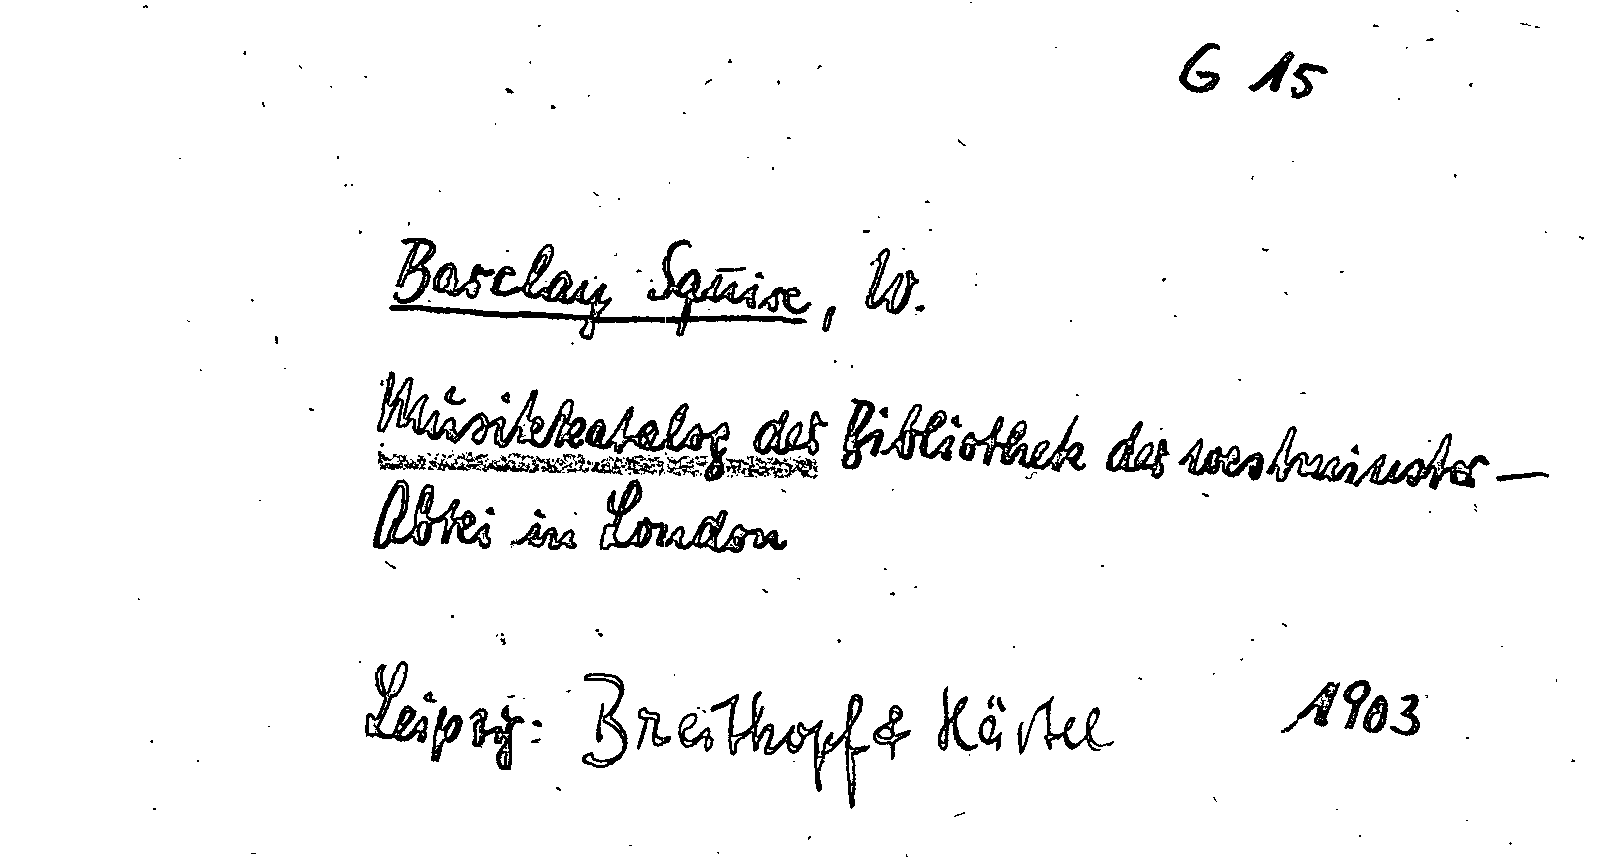 G 15
Barclay Squire, W.
Musikkatalog der Bibliothek der Westminster-
Abtei in London
Leipzig: Breitkopf & Härtel 1903